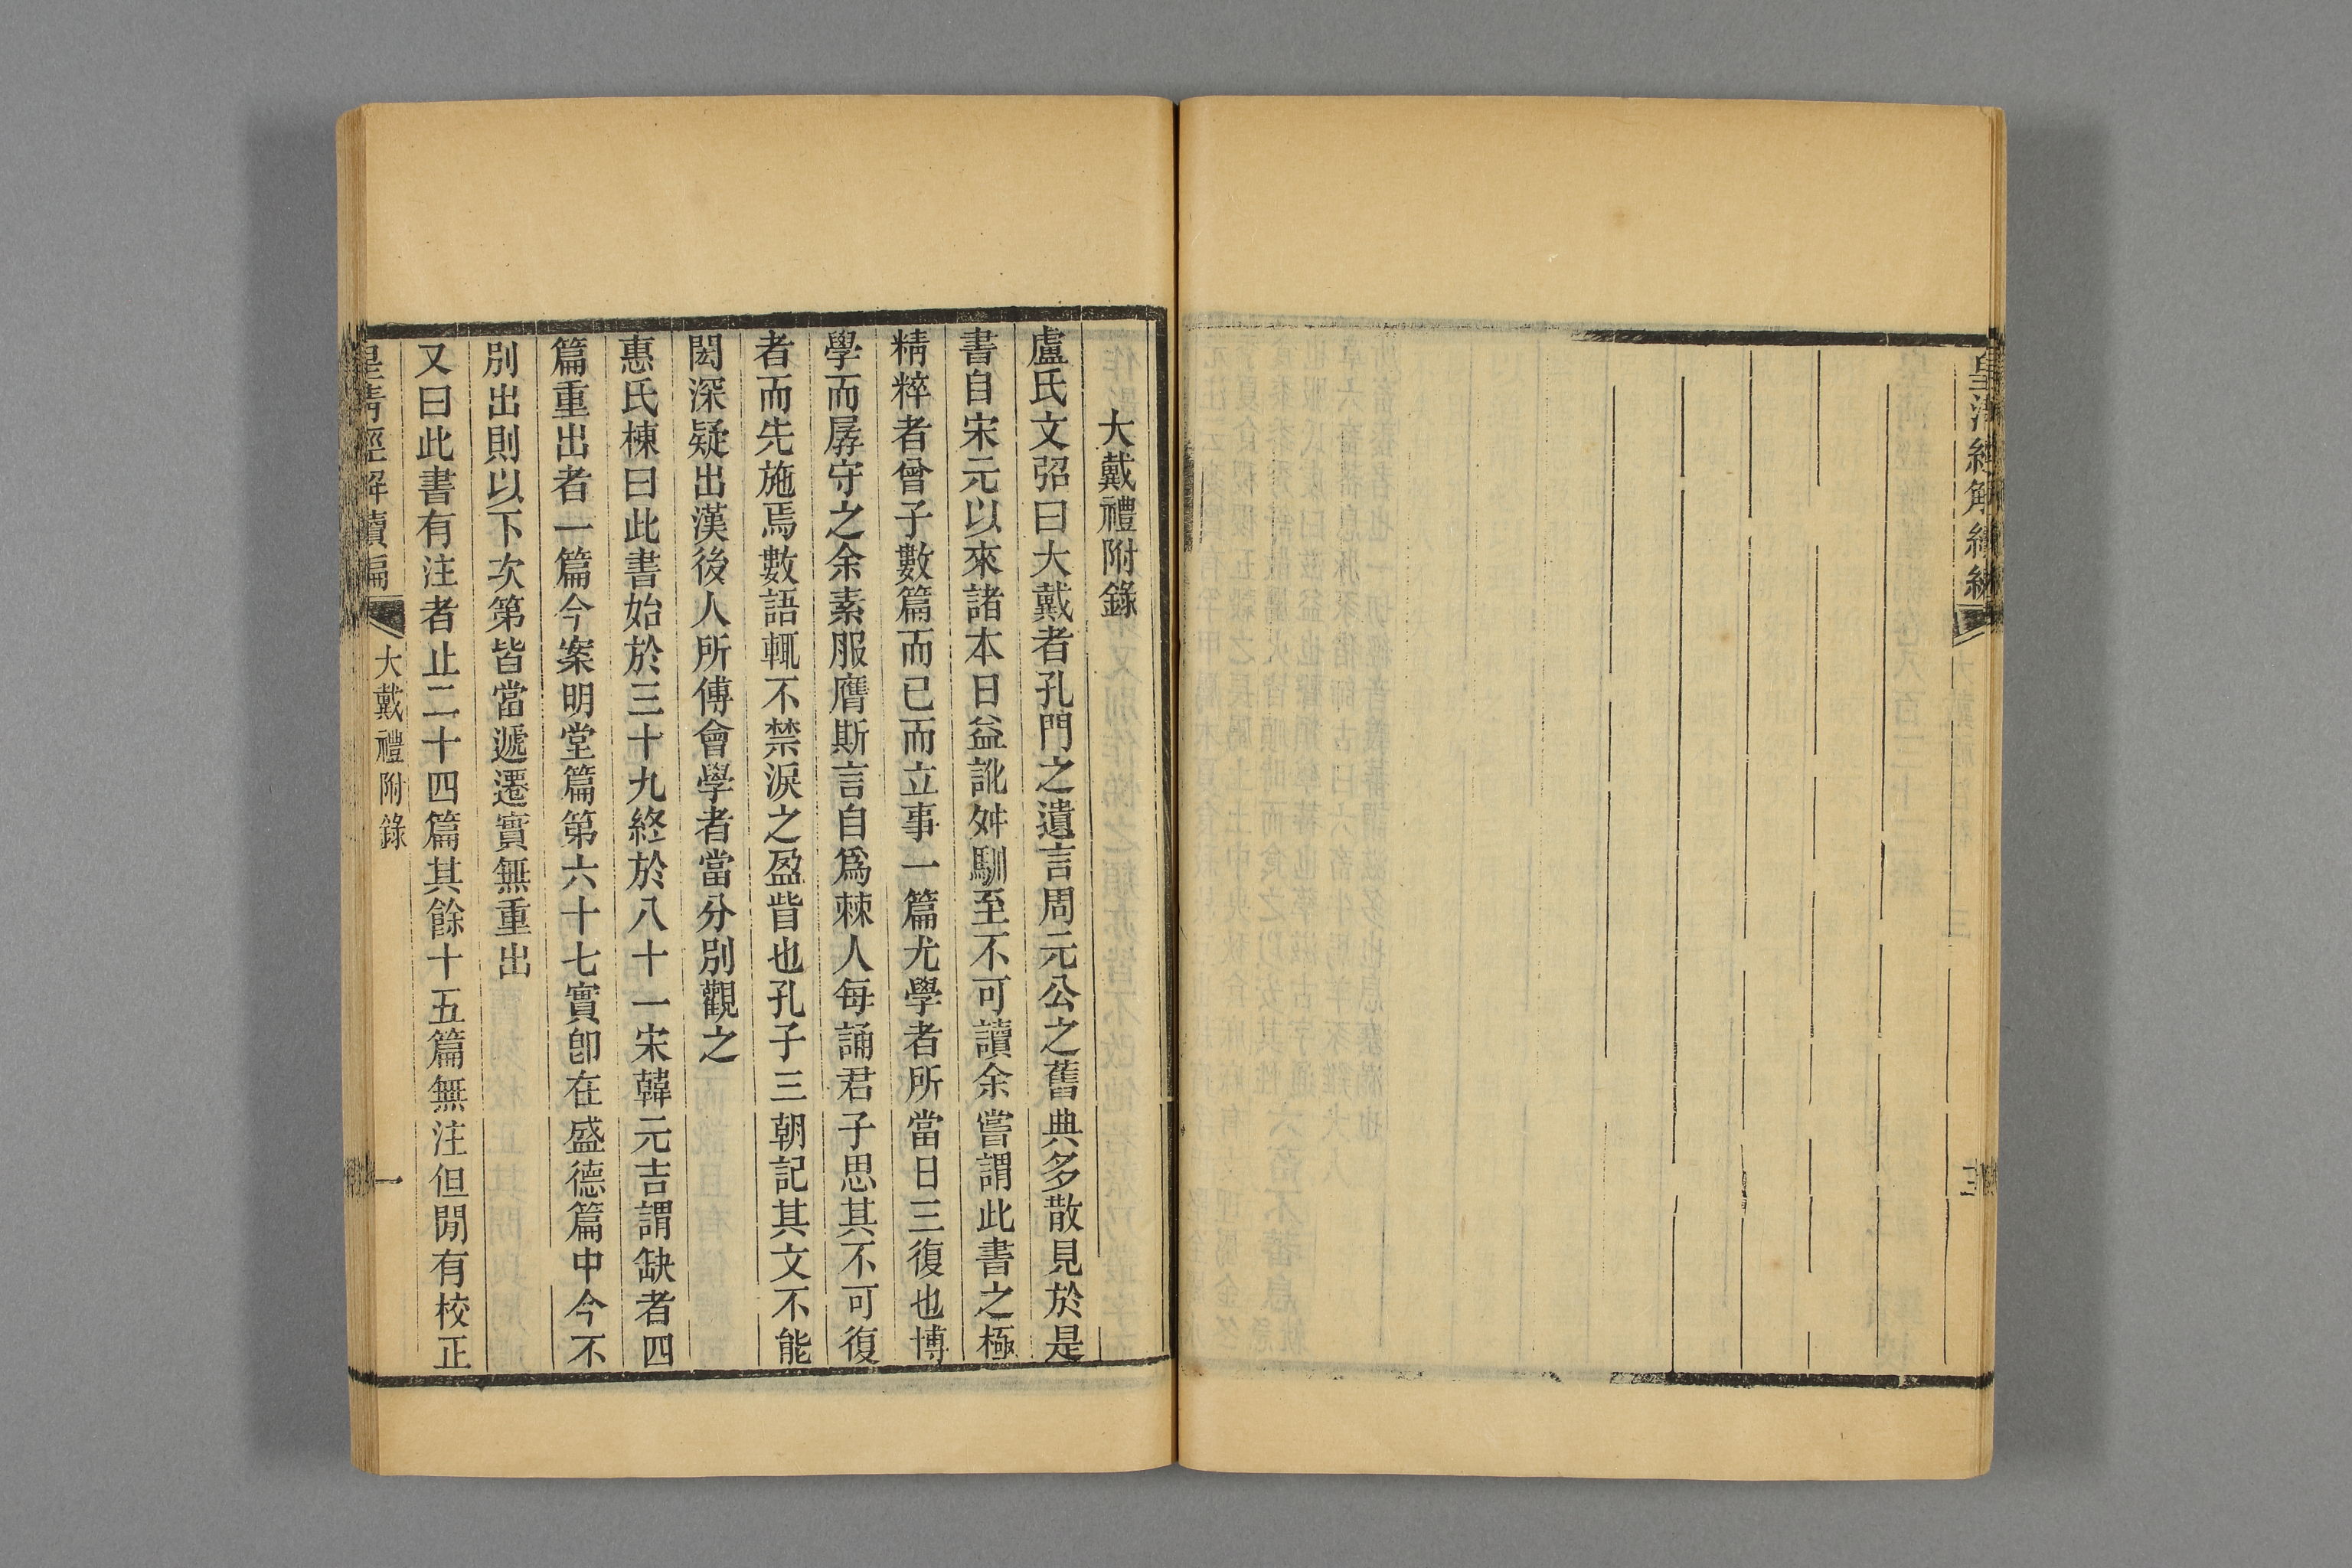 皇清經解續編
三
大戴禮附錄
盧氏文弨曰大戴者孔門之遺言周元公之舊典多散見於是
書自宋元以來諸本日益訛舛馴至不可讀余嘗謂此書之極
精粹者曾子數篇而已而立事一篇尤學者所當日三復也博
學而孱守之余素服膺斯言自爲棘人每誦君子思其不可復
者而先施焉數語輒不禁淚之盈眥也孔子三朝記其文不能
閎深疑出漢後人所傅會學者當分別觀之
惠氏棟曰此書始於三十九終於八十一宋韓元吉謂缺者四
篇重出者一篇今案明堂篇第六十七實卽在盛德篇中今不
別出則以下次第皆當遞遷實無重出
又曰此書有注者止二十四篇其餘十五篇無注但閒有校正
皇清經解續編
大戴禮附錄
一